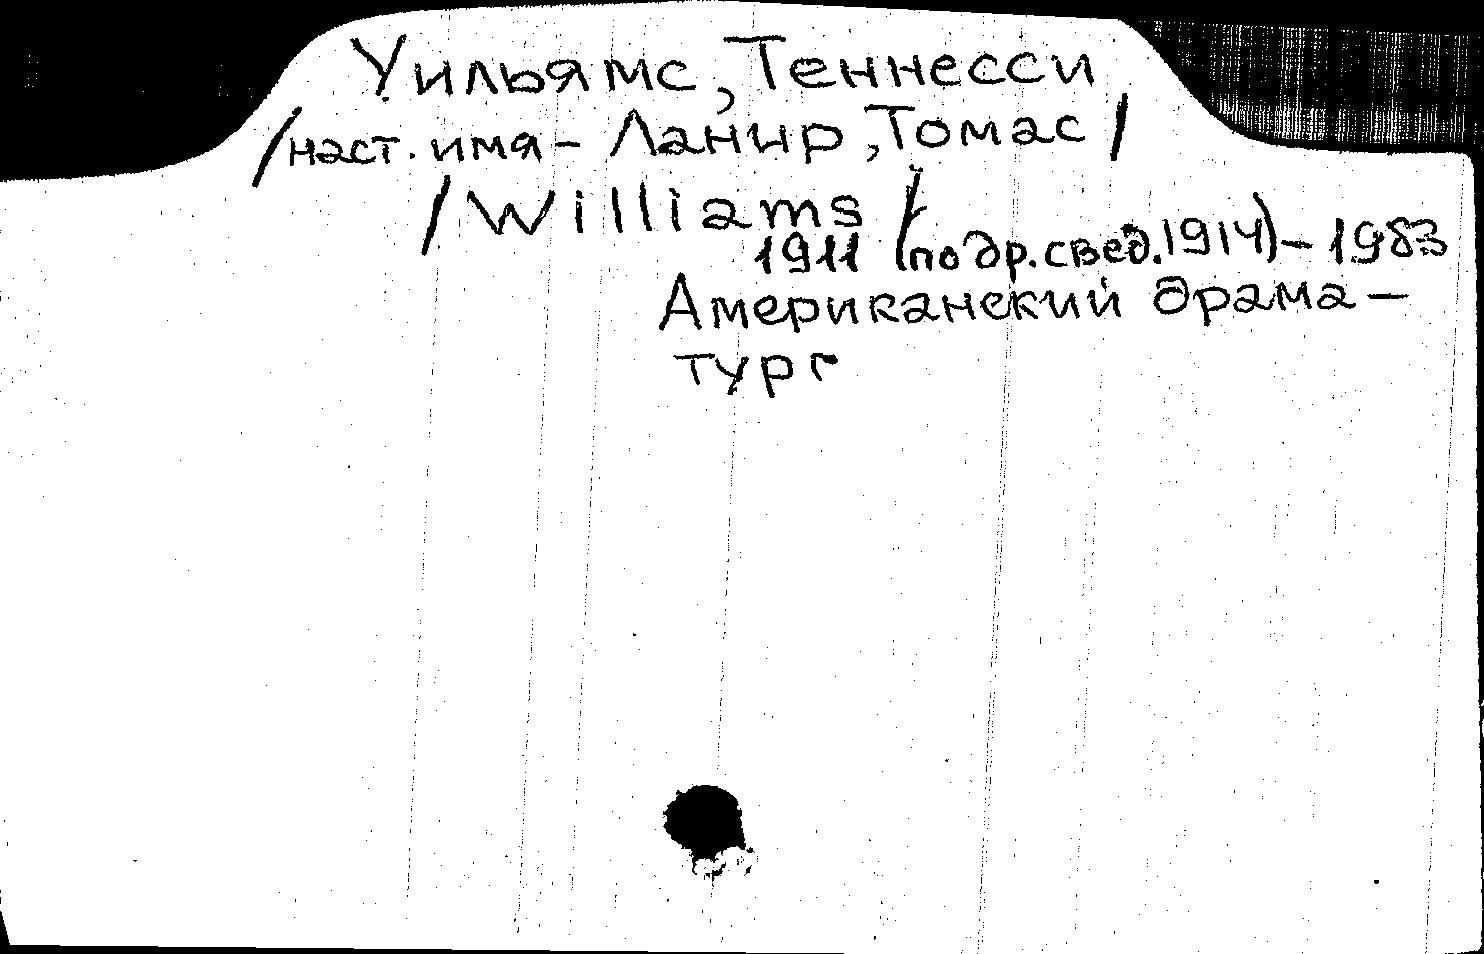 Уильямс, Теннесси
/наст. имя - Ланир, Томас/
/Williams/
1911 (по др. свед. 1914) - 1983
Американский драма-
тург